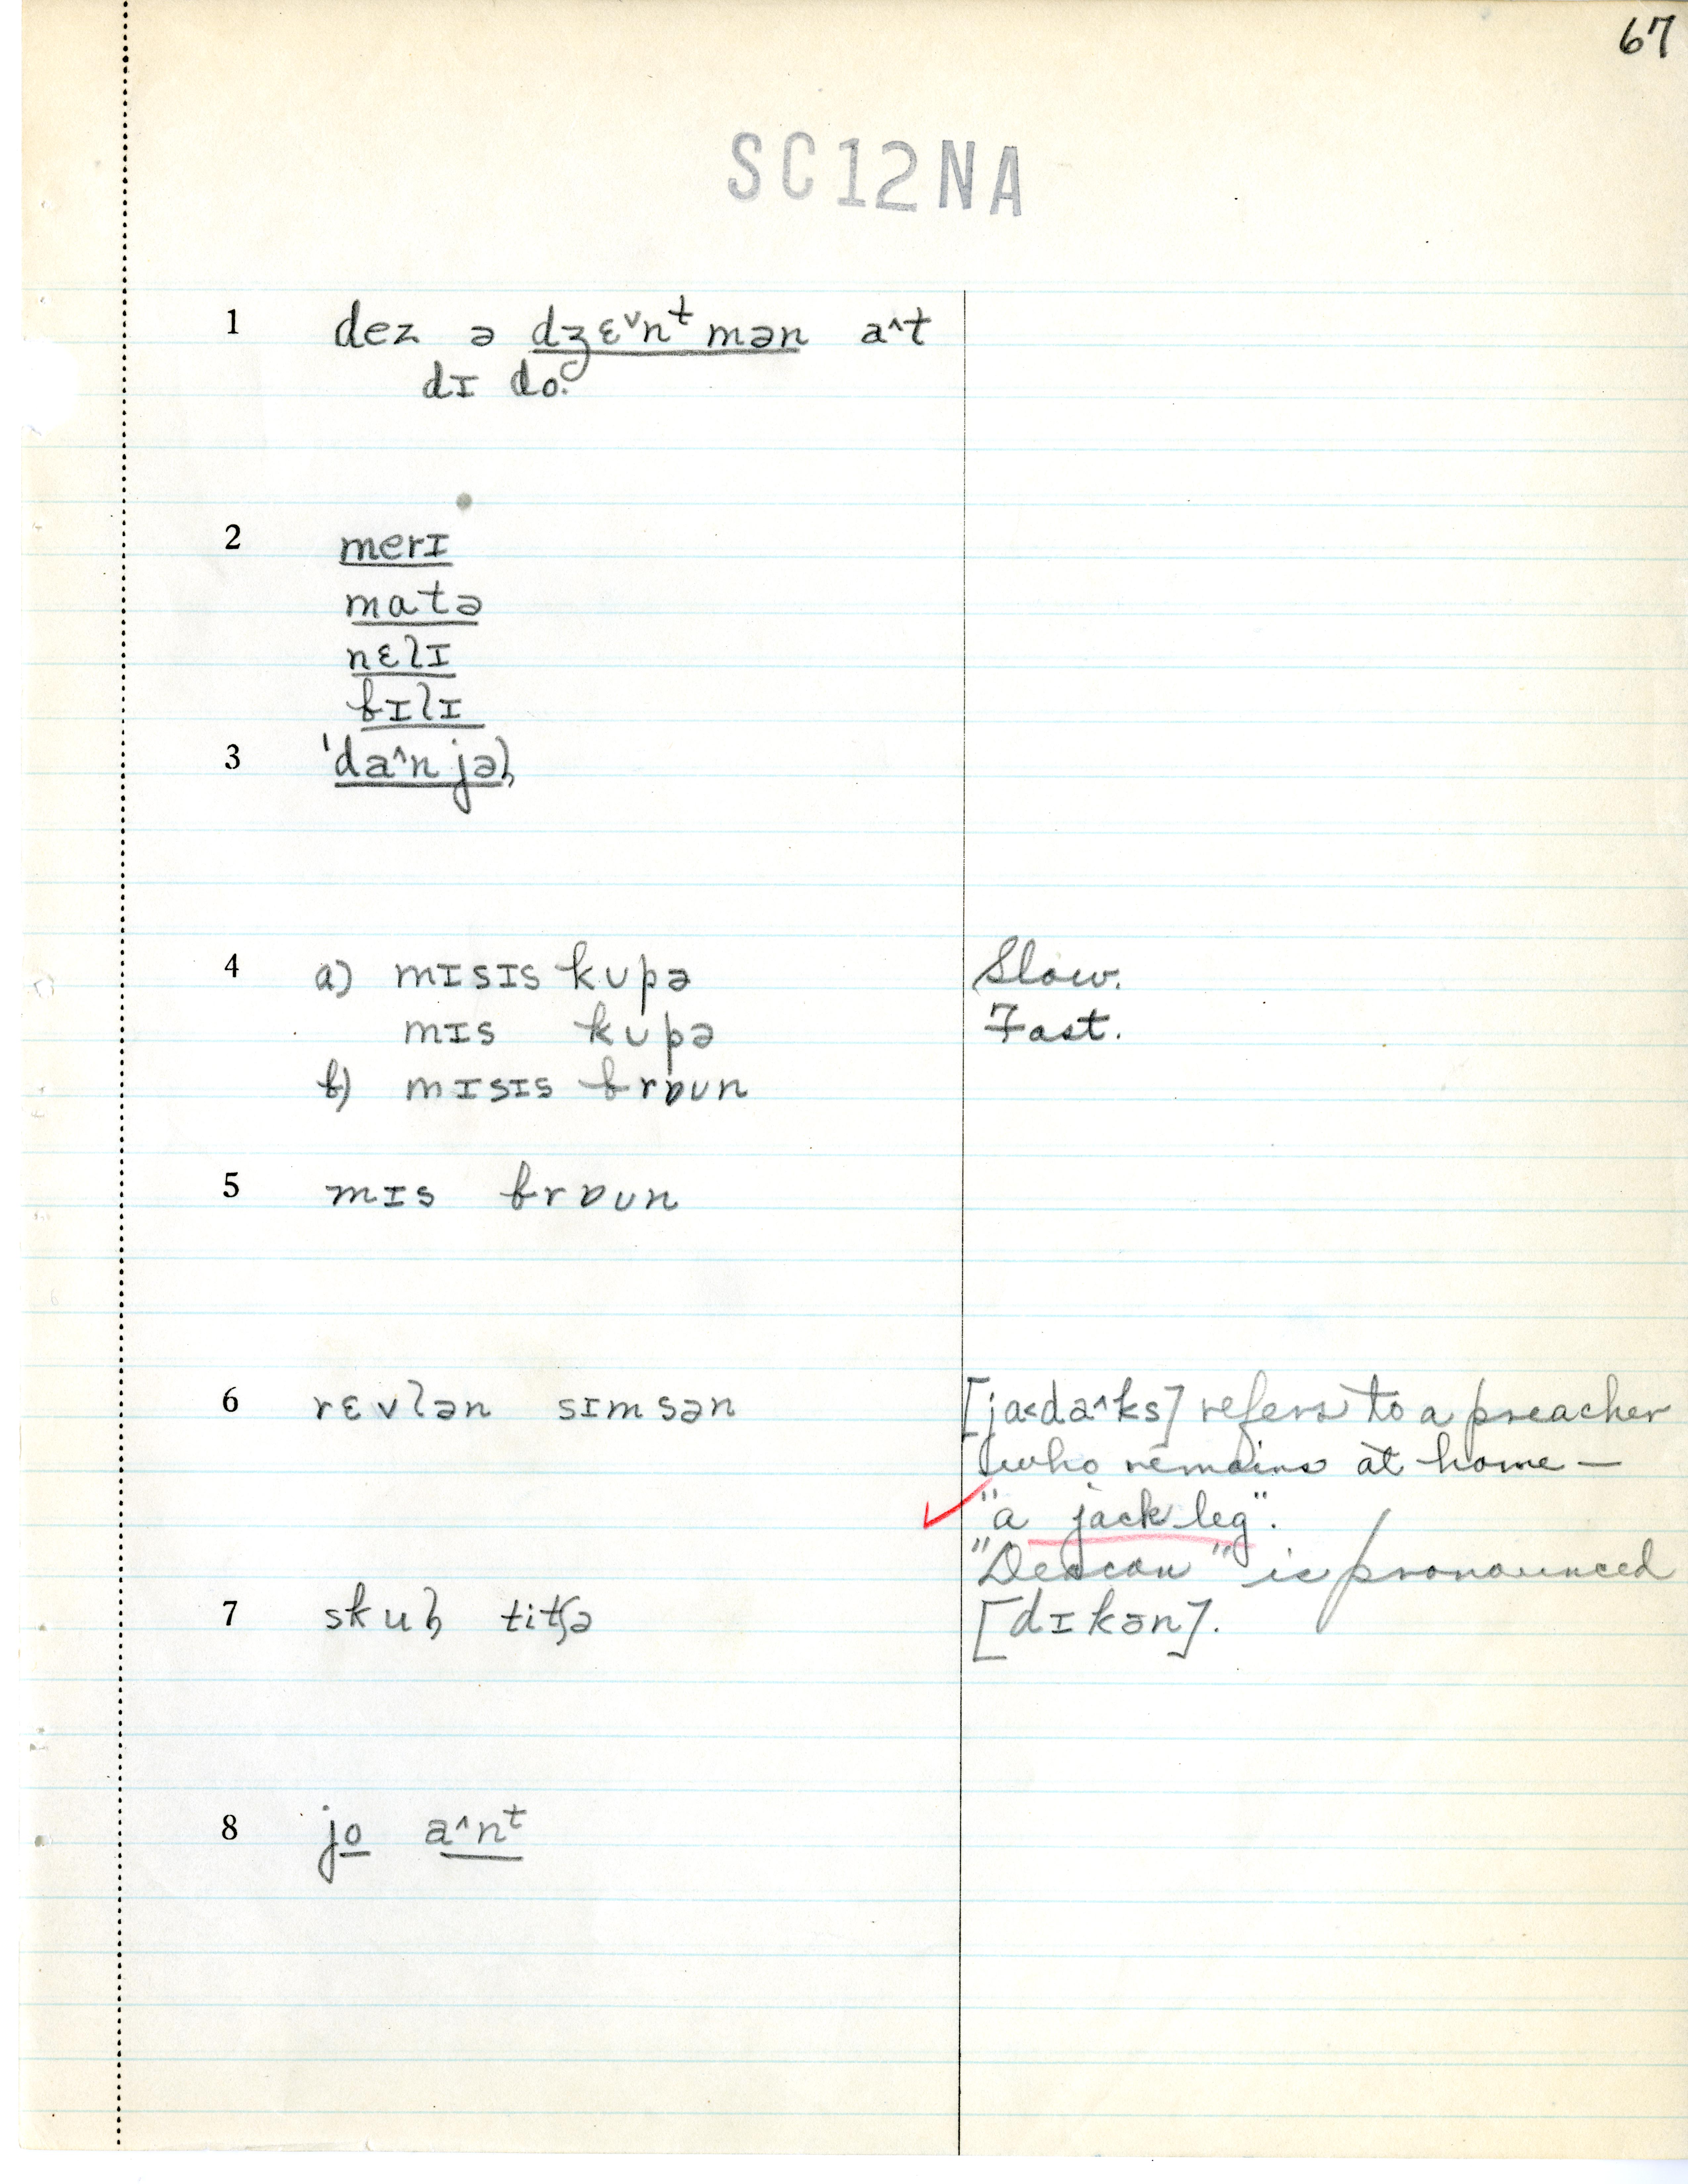 67
SC12NA
1 dez ə dʒɛ˅nᵗmən a^t
dɪ do.
2 merɪ
matə
nɛlɪ
bɪlɪ
3 'da^njəl
4 a) mɪsɪs kupə Slow.
mɪs kupə Fast.
b) mɪsɪs brɒun
5 mɪs brɒun
6 rɛvlən sɪmsən [ja˂da^ks] refers to a preacher
who remains at home —
"a jack leg".
"Deacon" is pronounced
7 skul titʃə [dɪkən].
8 jo a^nᵗ